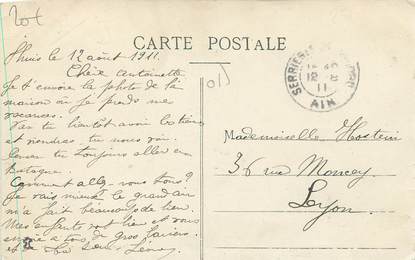 CARTE POSTALE
Lhuis le 12 août 1911.
Chère Antoinette
Je t'envoie la photo de la
maison où je prends mes
vacances.
Vas tu bientôt avoir les tiennes
et viendras tu nous voir.
tu toujours aller en
Comment allez-vous tous?
Je vais mieux le grand air
m'a fait beaucoup de bien.
Mes enfants vont bien et vous
envoie à tous de gros baisers.
Mademoiselle Hostein
36 rue Moncey
Lyon.
SERRIERES
AIN